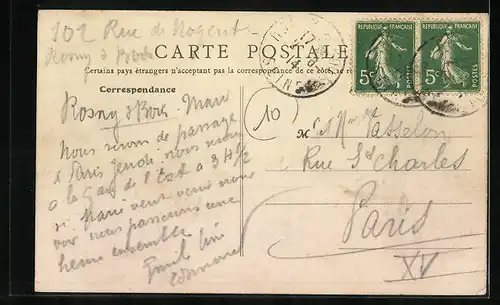 102 Rue de Nogent
Rosny s/Bois
CARTE POSTALE
Certains pays étrangers n'acceptant pas la correspondance de ce côté, se re
Correspondance
RÉPUBLIQUE FRANÇAISE
5c
POSTES
RÉPUBLIQUE FRANÇAISE
5c
POSTES
17
14
Rosny s/Bois Mari
Nous serons de passage
à Paris Jeudi nous serons
à la Gare de l'Est à 3 H 1/2
si Marie veut venir nous
voir nous passerons une
heure ensemble
Edmond
10
M
Rue St Charles
Paris
XV